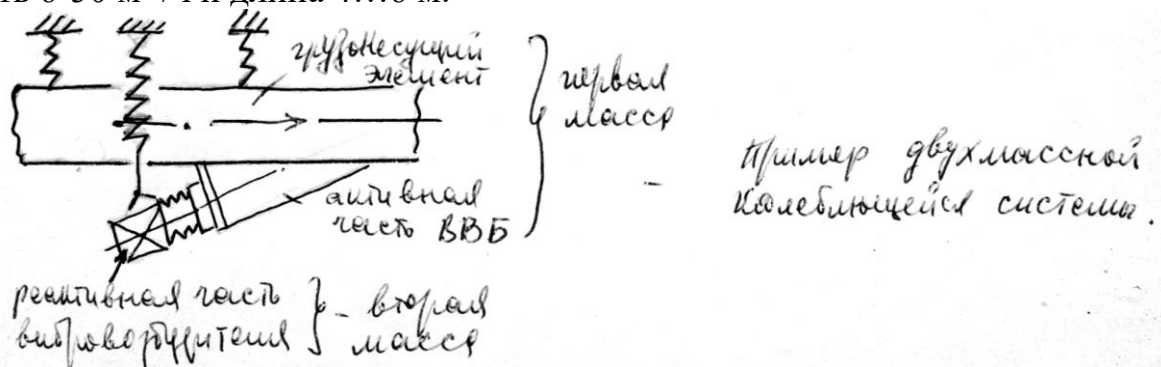 длина
м.
грузонесущий
элемент
первая
масса
активная
часть ВВБ
Пример двухмассной
колеблющейся системы.
реактивная часть
вибровозбудителя
- вторая
масса